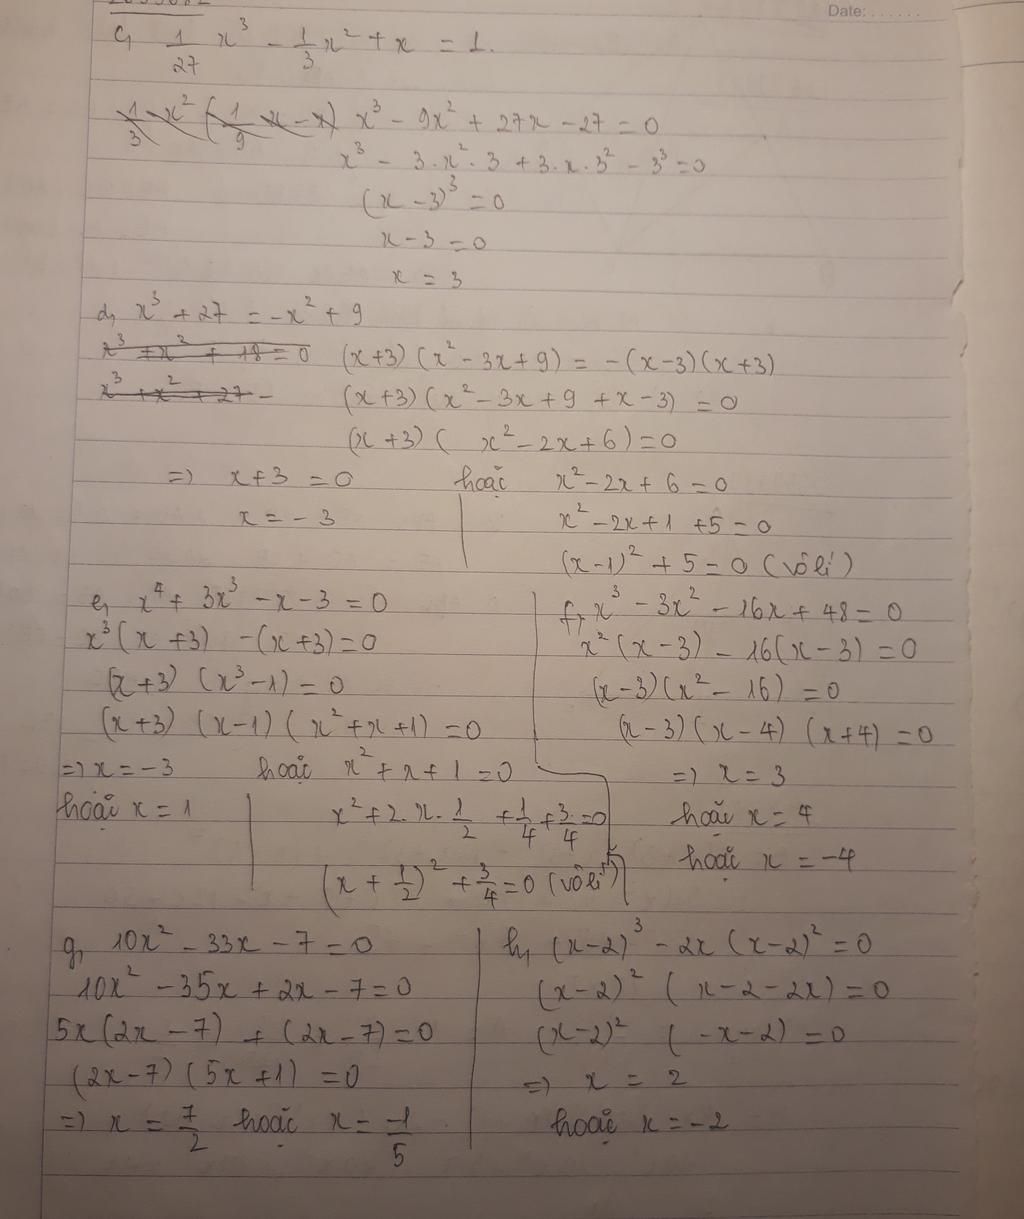 Date: . . . . . .
c, 1/27 x³ - 1/3 x² + x = 1.
1/3 x² (1/9 x - x) x³ - 9x² + 27x - 27 = 0
x³ - 3.x².3 + 3.x.3² - 3³ = 0
(x - 3)³ = 0
x - 3 = 0
x = 3
d, x³ + 27 = -x² + 9
x³ + x² + 18 = 0 (x+3)(x² - 3x + 9) = -(x-3)(x+3)
x³ + x² + 27 - (x+3)(x² - 3x + 9 + x - 3) = 0
(x+3)( x² - 2x + 6) = 0
=> x + 3 = 0 hoặc x² - 2x + 6 = 0
x = -3 x² - 2x + 1 + 5 = 0
(x-1)² + 5 = 0 (vô lí)
e, x⁴ + 3x³ - x - 3 = 0
x³(x + 3) - (x+3) = 0
(x+3) (x³ - 1) = 0
(x+3) (x-1) (x² + x + 1) = 0
=> x = -3 hoặc x² + x + 1 = 0
hoặc x = 1 x² + 2.x.1/2 + 1/4 + 3/4 = 0
(x + 1/2)² + 3/4 = 0 (vô lí)
f, x³ - 3x² - 16x + 48 = 0
x²(x - 3) - 16(x - 3) = 0
(x-3)(x² - 16) = 0
(x-3)(x-4) (x+4) = 0
=> x = 3
hoặc x = 4
hoặc x = -4
g, 10x² - 33x - 7 = 0
10x² - 35x + 2x - 7 = 0
5x(2x - 7) + (2x - 7) = 0
(2x-7)(5x+1) = 0
=> x = 7/2 hoặc x = -1/5
h, (x-2)³ - 2x (x-2)² = 0
(x-2)² (x - 2 - 2x) = 0
(x-2)² (-x-2) = 0
=> x = 2
hoặc x = -2